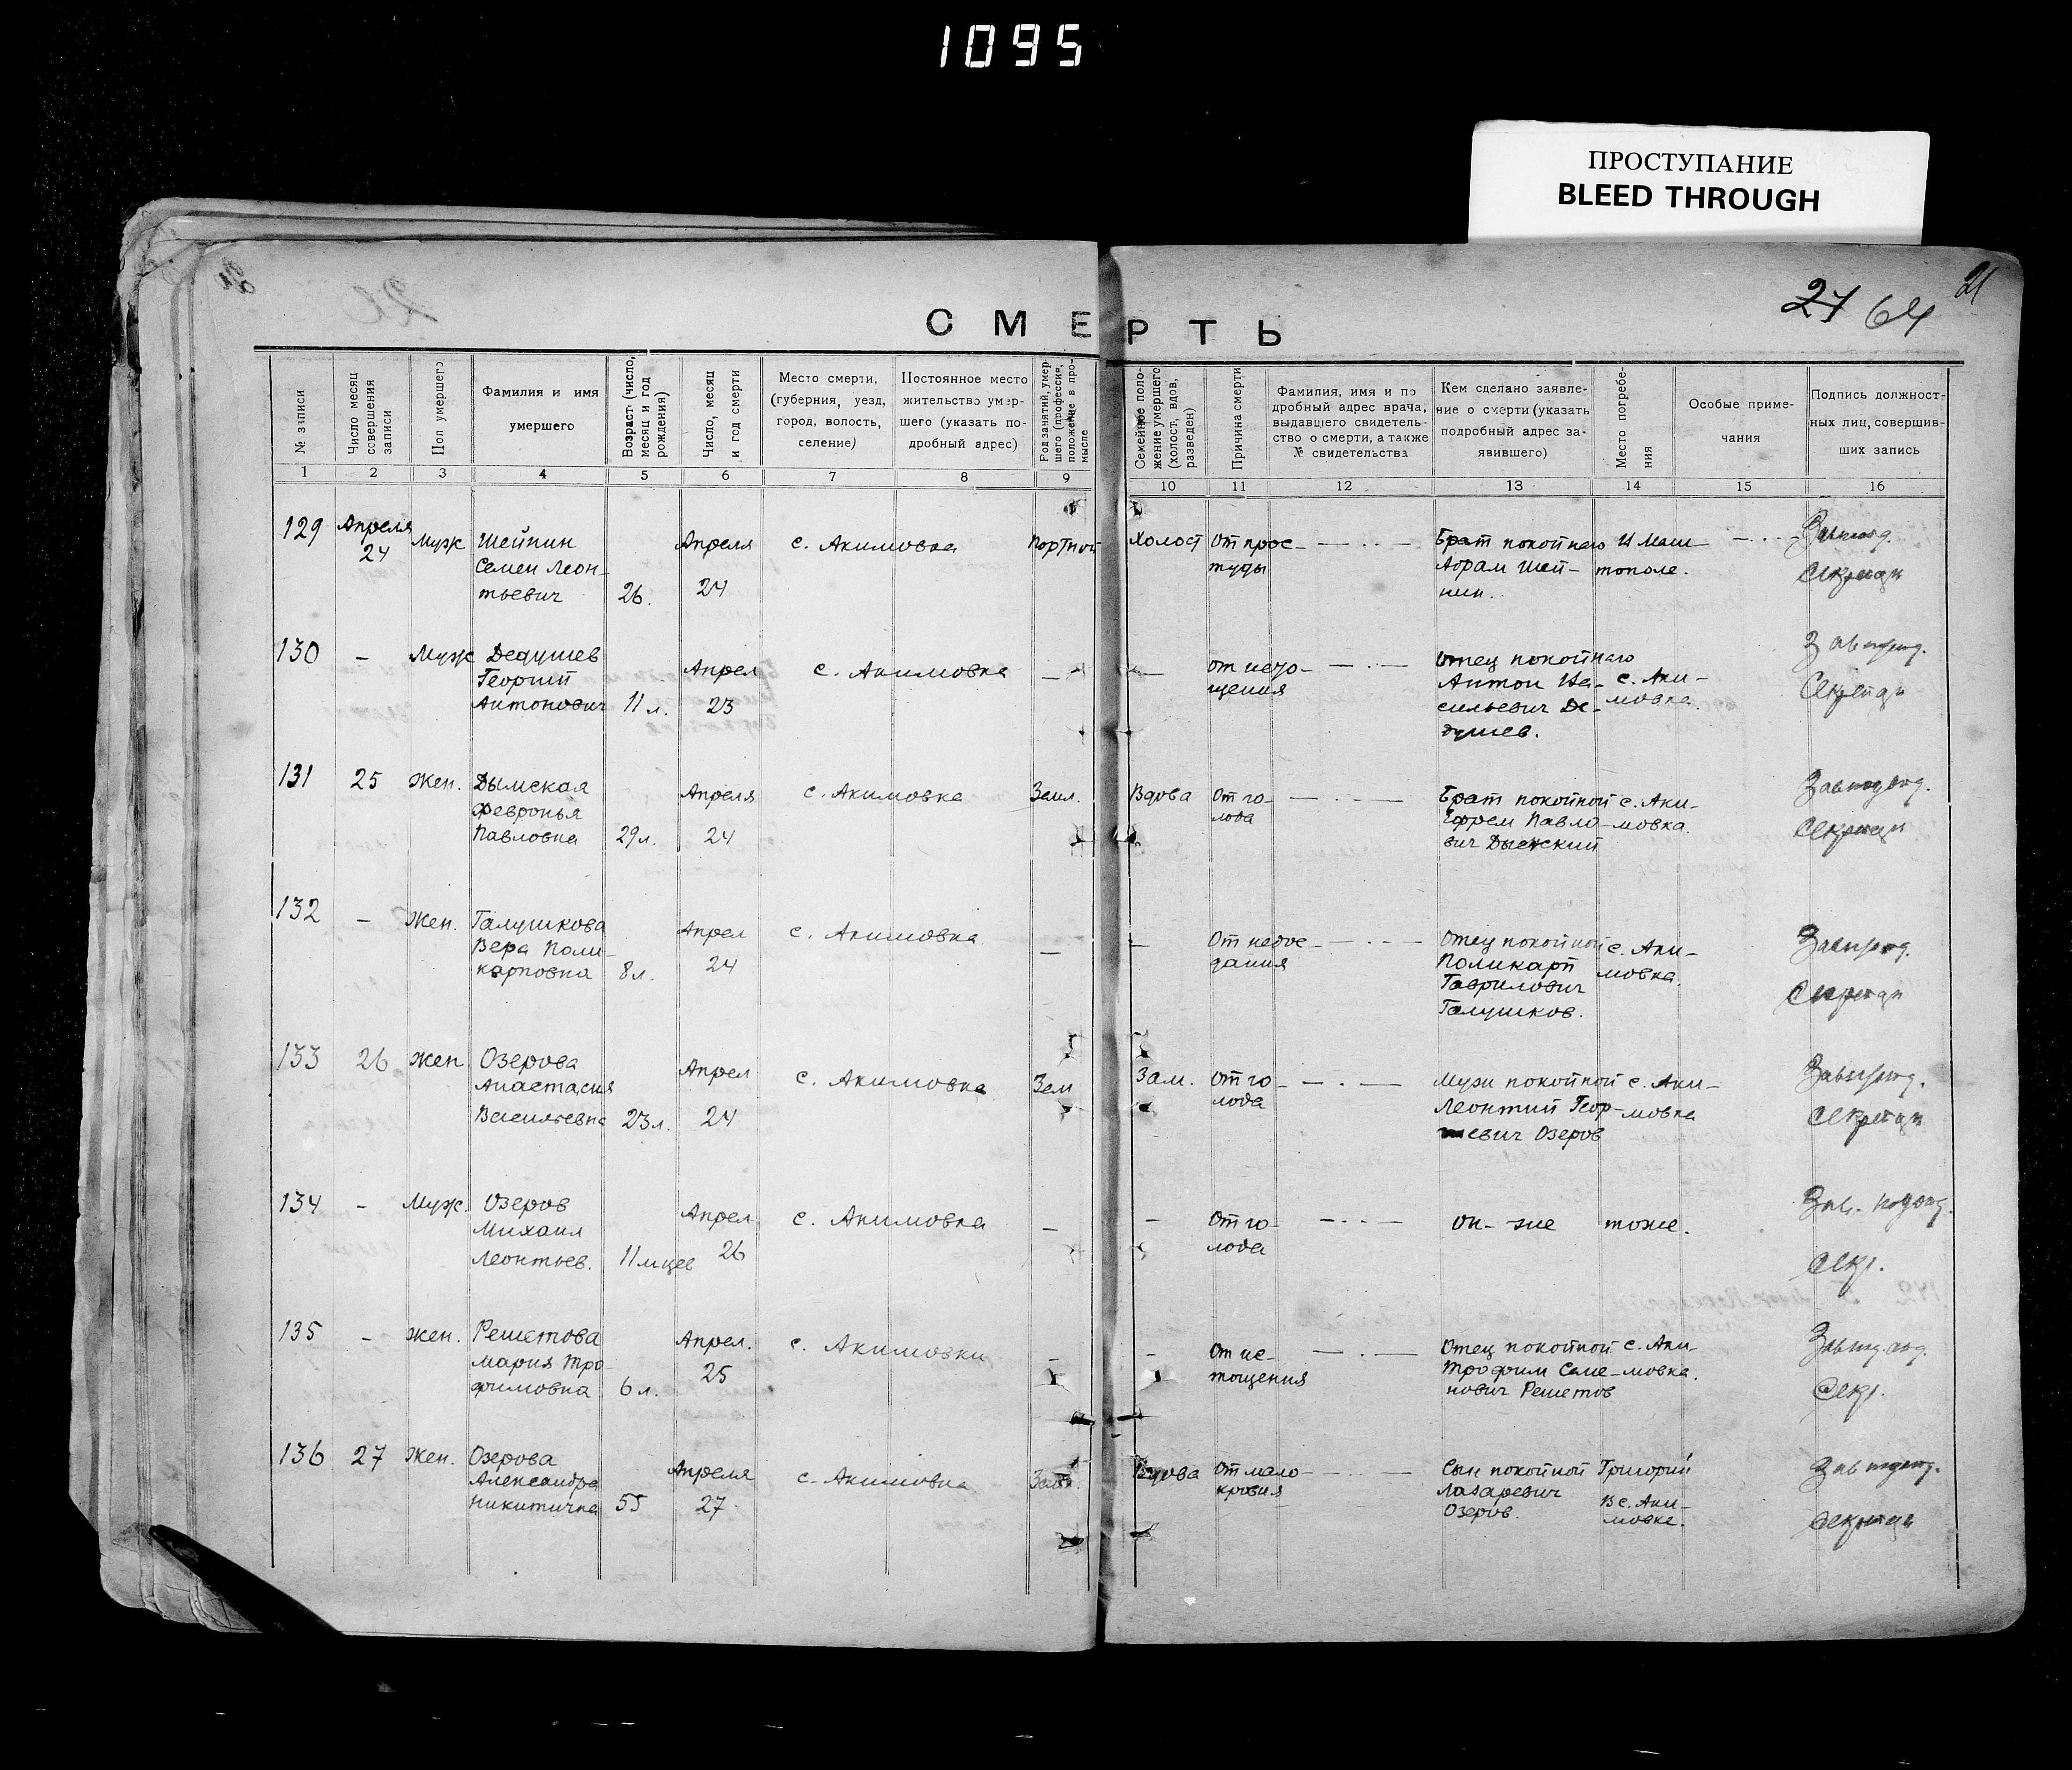 1095
ПРОСТУПАНИЕ
BLEED THROUGH
21
64
СМЕРТЬ
№ записи
Число месяц совершения записи
Пол умершего
Фамилия и имя
умершего
Возраст (число, месяц и год рождения)
Число, месяц и год смерти
Место смерти,
(губерния, уезд,
город, волость,
селение)
Постоянное место
жительство умер-
шего (указать по-
дробный адрес)
Род занятий, умер-
шего (профессия,
положение в про-
мысле
Семейное поло-
жение умершего
(холост, вдов,
разведен)
Причина смерти
Фамилия, имя и по
дробный адрес врача,
выдавшего свидетель-
ство о смерти, а также
№ свидетельства
Кем сделано заявле-
ние о смерти (указать
подробный адрес за-
явившего)
Место погребе-
ния
Особые приме-
чания
Подпись должност-
ных лиц, соверши-
ших запись
1 2 3 4 5 6 7 8 9 10 11 12 13 14 15 16
129 Апреля 24 Муж Шейнин
Семен Леон-
тьевич 26. Апреля 24 с. Акимовка Портной Холост От прос-
туды — · · — Брат покойнаго
Абрам Шей-
нин.
тополе. — · · —
Секретарь
130 – Муж Дедушев
Георгий
Антонович 11 л. Апрел 23 с. Акимовка — — От исто-
щения — · — Отец покойнаго
Антон Ва-
сильевич Де-
душев. с. Аки-
мовка.
Секретарь
131 25 Жен. Дымская
Февронья
Павловна 29 л. Апреля 24 с. Акимовка Земл. Вдова От го-
лода — · — Брат покойной
Ефрем Павло-
вич Дымский с. Аки-
мовка.
Секретарь
132 – Жен. Галушкова
Вера Поли-
карповна 8 л. Апрел 24 с. Акимовка — – От недое-
дания — · · — Отец покойной
Поликарп
Гаврилович
Галушков. с. Аки-
мовка.
Секретарь
133 26 Жен Озерова
Анастасия
Васильевна 23 л. Апрел 24 с. Акимовка Зем Зам. От го-
лода — · — Муж покойной
Леонтий Геор-
гиевич Озеров с. Аки-
мовка
Секретарь
134 – Муж. Озеров
Михаил
Леонтьев. 11 м-цев Апрел 26 с. Акимовка – – От го-
лода — · · — он-же тоже.
Секр.
135 – Жен. Решетова
Мария Тро-
фимовна 6 л. Апрел. 25 с. Акимовки – – От ис-
тощения — · — Отец покойной
Трофим Семе-
нович Решетов с. Аки-
мовка.
Секр.
136 27 Жен. Озерова
Александра
Никитична 55 Апреля 27 с. Акимовка Вдова От мало-
кровия — · · — Сын покойной Григорий
Лазаревич
Озеров. В с. Аки-
мовке.
Секретарь